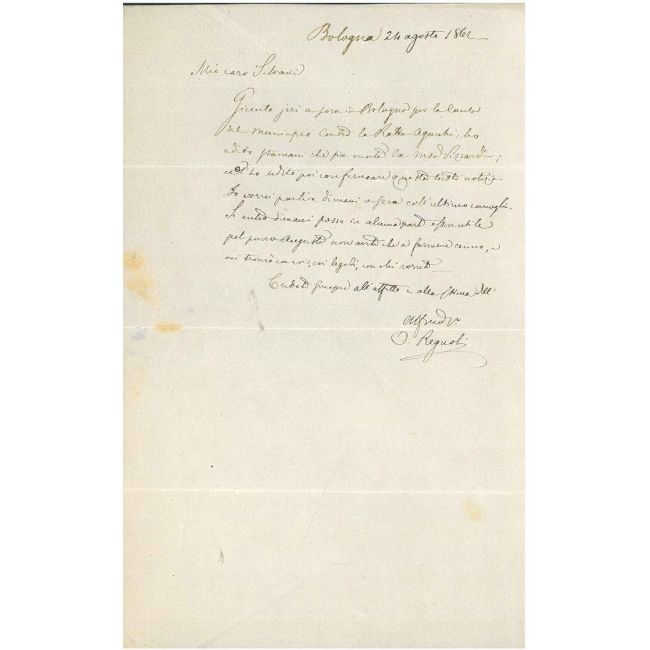 Bologna 24 agosto 1862
Mio caro Silvani
Giunto jeri a sera in Bologna per la causa
del municipio contro la Ratta-Aguchi, ho
udito stamani che
ed ho udito poi confermare questa triste notizia.
Io vorrei partire dimani a sera coll' ultimo convoglio.
Se entro dimani posso in alcuna parte esser utile
pel povero Augusto non avete che a farmene cenno, e
mi troverò con voi, coi legali, con chi vorrete
Credete sempre all' affetto e alla stima dell'
O. Regnoli